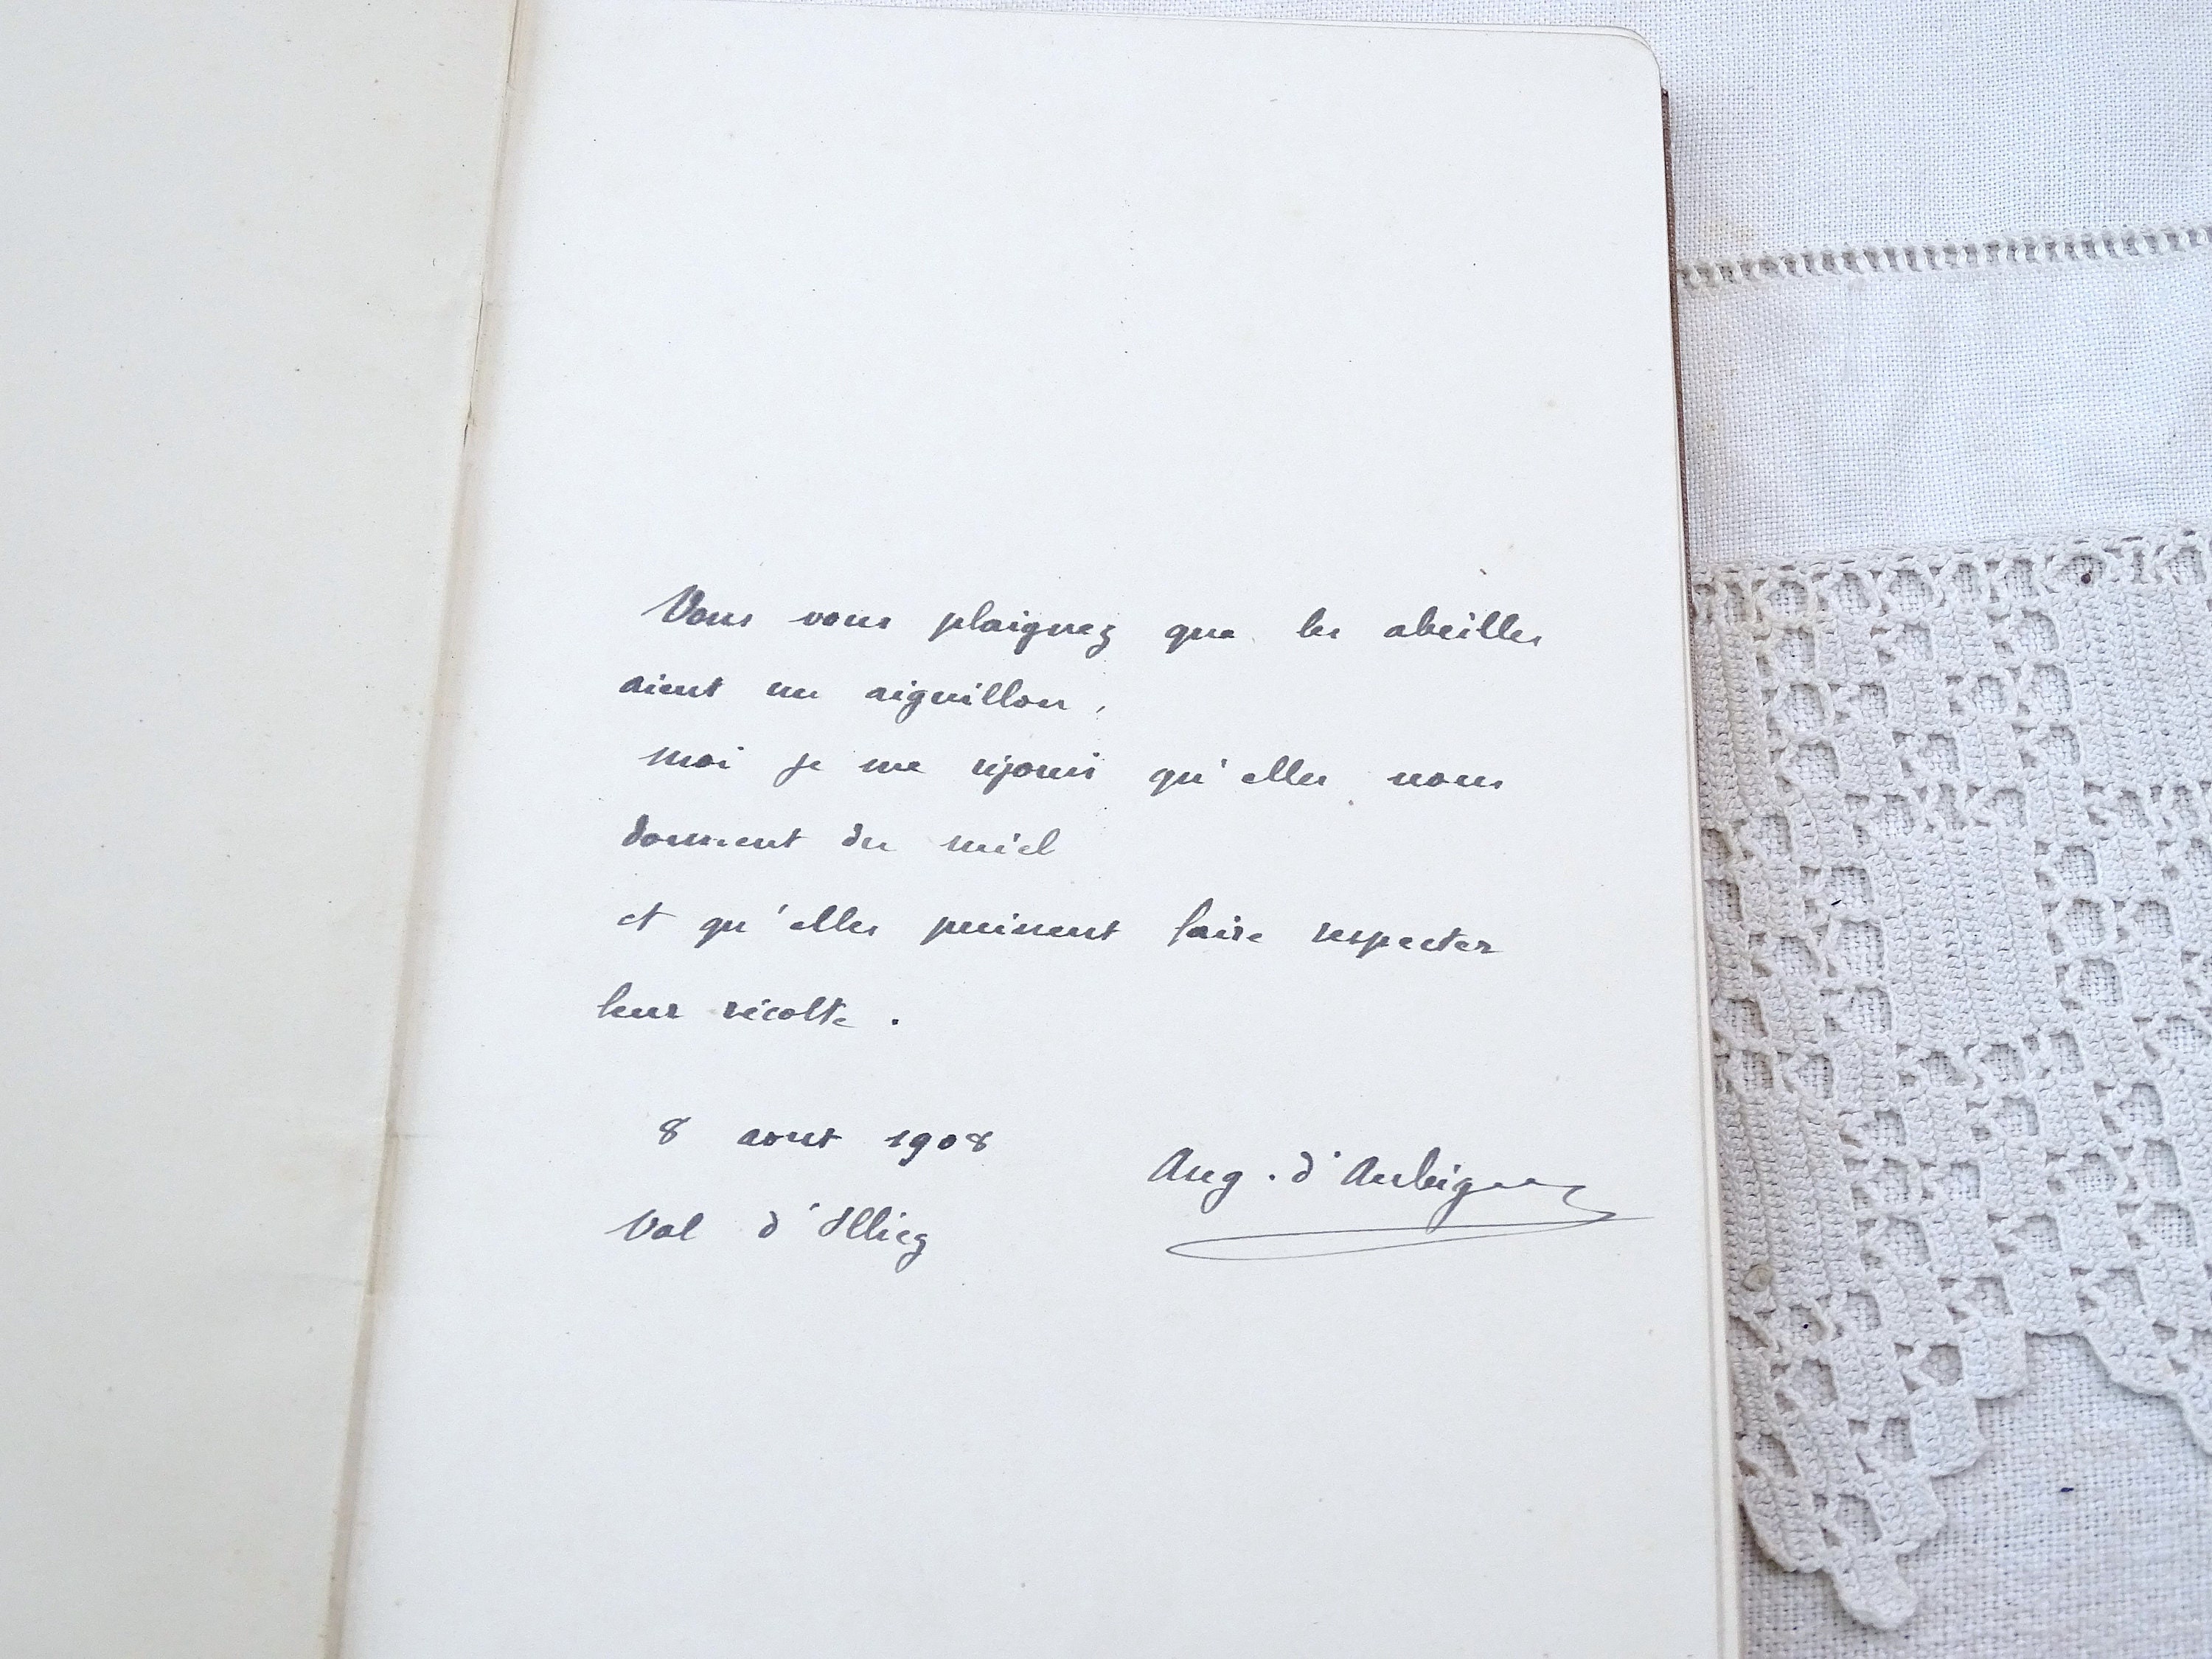 Vous vous plaignez que les abeilles
aient un aiguillon,
moi je me réjouis qu'elles nous
donnent du miel
et qu'elles puissent faire respecter
leur récolte.
8 aout 1908
Aug. d'Aubigné
Val d'Illiez